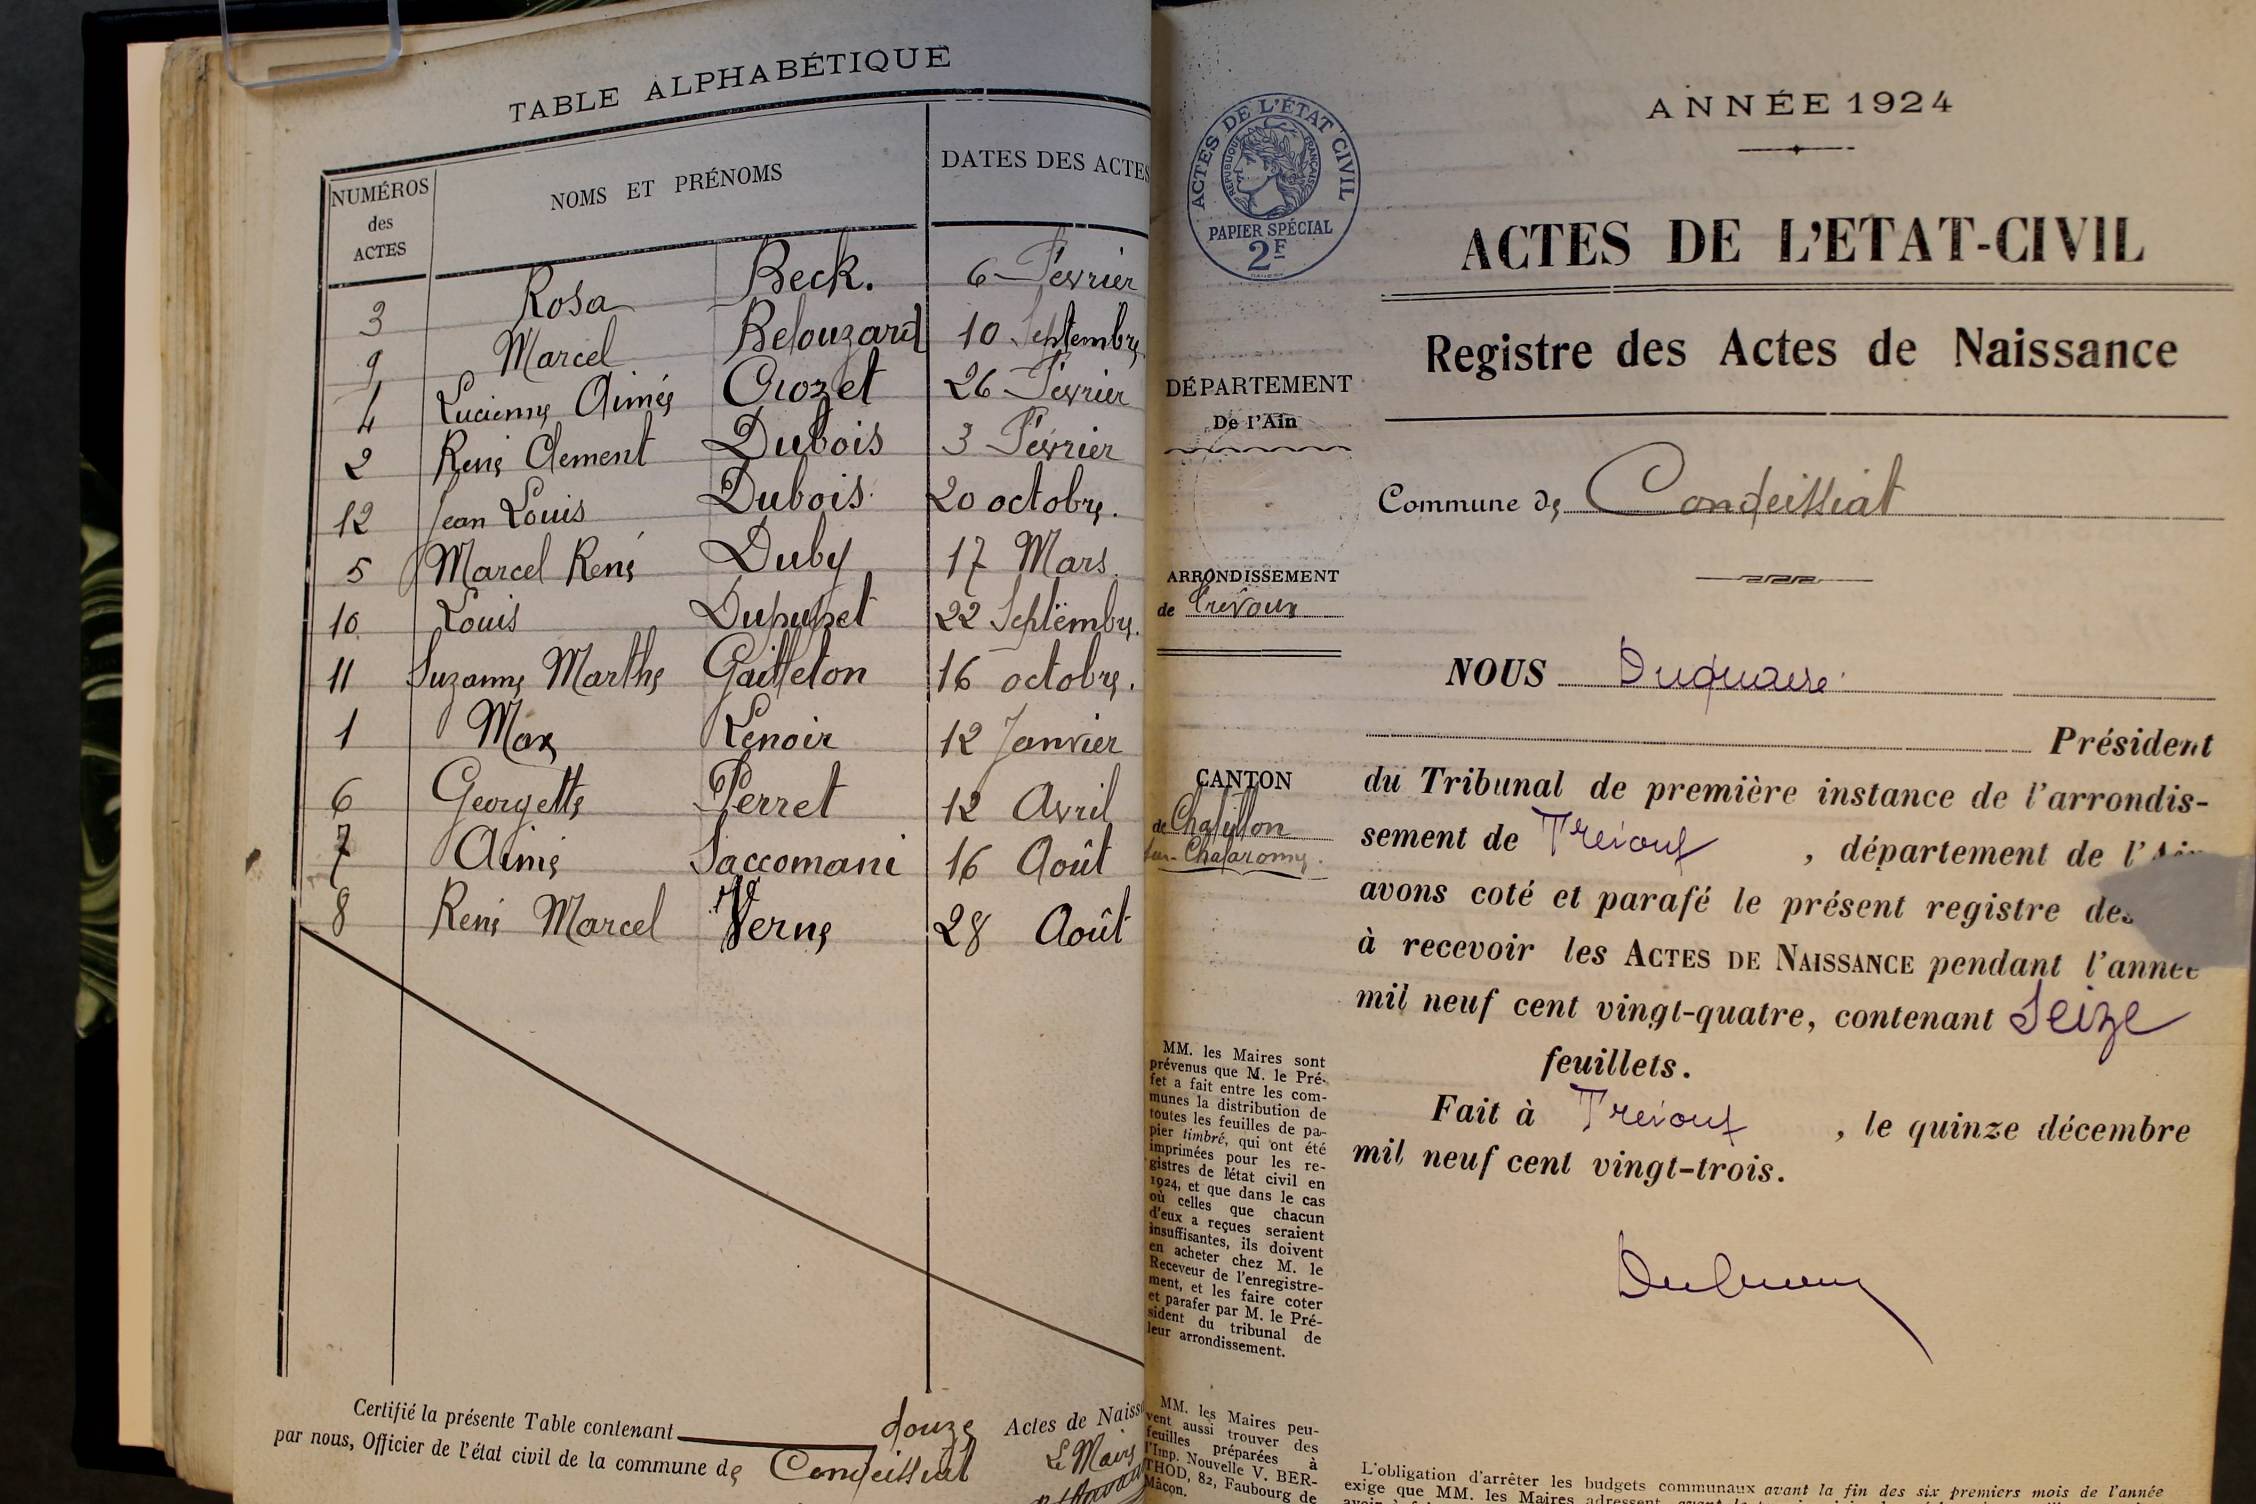 TABLE ALPHABÉTIQUE
NUMÉROS des ACTES
NOMS ET PRÉNOMS
DATES DES ACTES
3 Rosa Beck. 6 Février
9 Marcel Belouzard 10 Septembre
4 Lucienne Aimée Crozet 26 Février
2 René Clement Dubois 3 Février
12 Jean Louis Dubois. 20 octobre.
5 Marcel René Duby 17 Mars.
10 Louis Dupupet 22 Septembre.
11 Suzanne Marthe Gailleton 16 octobre.
1 Max Lenoir 12 Janvier
6 Georgette Perret 12 Avril
7 Aimé Saccomani 16 Août
8 René Marcel Verne 28 Août
Certifié la présente Table contenant douze Actes de Naiss
par nous, Officier de l'état civil de la commune de Condeissiat
Le Maire
ACTES DE L'ÉTAT CIVIL
RÉPUBLIQUE FRANÇAISE
PAPIER SPÉCIAL
2F
DÉPARTEMENT
De l'Ain
ARRONDISSEMENT
de Trévoux
CANTON
de Chatillon
sur-Chalaronne.
MM. les Maires sont
prévenus que M. le Pré-
fet a fait entre les com-
munes la distribution de
toutes les feuilles de pa-
pier timbré, qui ont été
imprimées pour les re-
gistres de l'état civil en
1924, et que dans le cas
où celles que chacun
d'eux a reçues seraient
insuffisantes, ils doivent
en acheter chez M. le
Receveur de l'enregistre-
ment, et les faire coter
et parafer par M. le Pré-
sident du tribunal de
leur arrondissement.
MM. les Maires peu-
vent aussi trouver des
feuilles préparées à
l'Imp. Nouvelle V. BER-
THOD, 82, Faubourg de
Mâcon.
ANNÉE 1924
ACTES DE L'ETAT-CIVIL
Registre des Actes de Naissance
Commune de Condeissiat
NOUS Duquaire
Président
du Tribunal de première instance de l'arrondis-
sement de Trévoux, département de l'Ain
avons coté et parafé le présent registre des
à recevoir les ACTES DE NAISSANCE pendant l'année
mil neuf cent vingt-quatre, contenant Seize
feuillets.
Fait à Trévoux, le quinze décembre
mil neuf cent vingt-trois.
L'obligation d'arrêter les budgets communaux avant la fin des six premiers mois de l'année
exige que MM. les Maires adressent